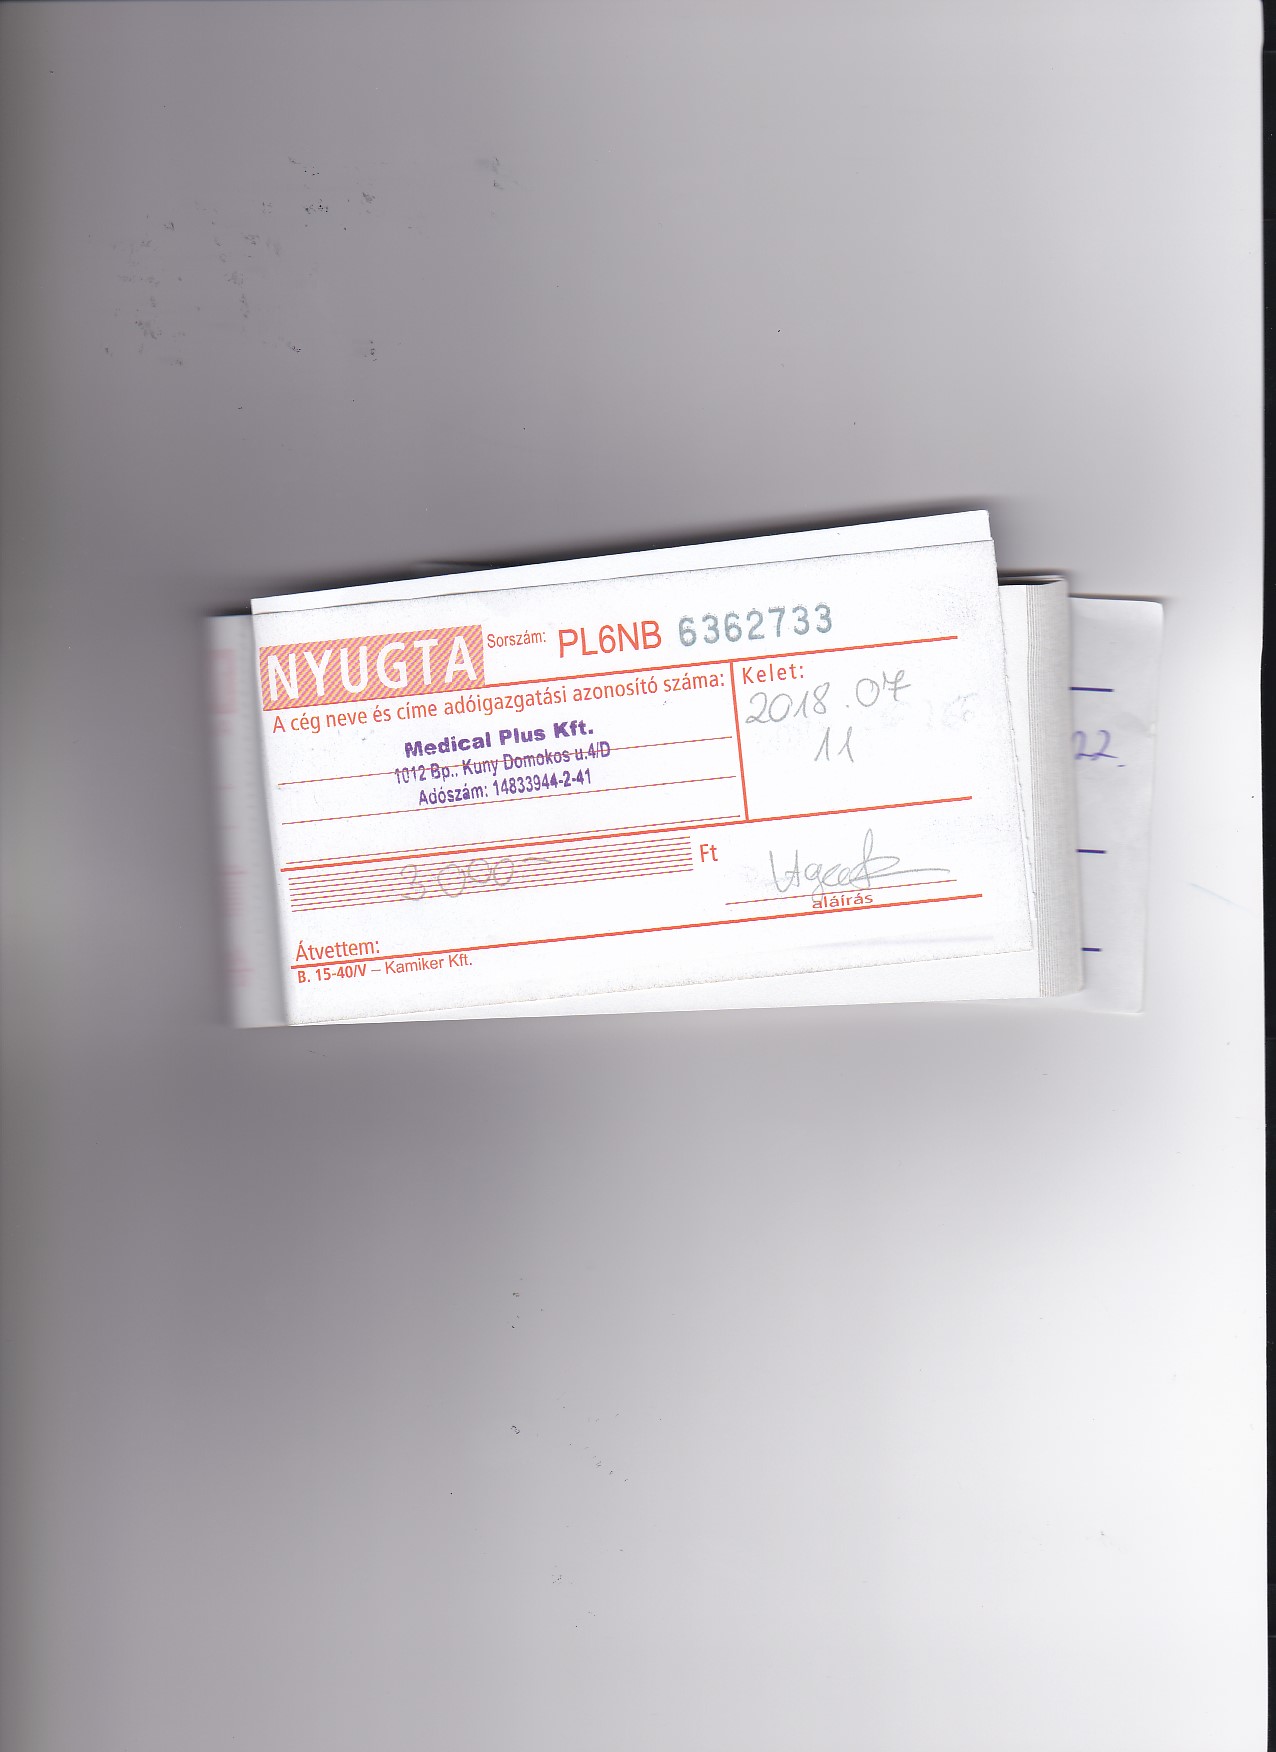 NYUGTA Sorszám: PL6NB 6362733
A cég neve és címe adóigazgatási azonosító száma:
Kelet:
2018.07
11
Medical Plus Kft.
1012 Bp., Kuny Domokos u.4/D
Adószám: 14833944-2-41
3000 Ft
aláírás
Átvettem:
B. 15-40/V – Kamiker Kft.
22.